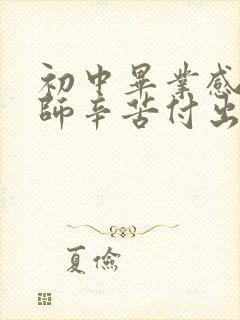 初中畢業感
師辛苦付出
夏儉